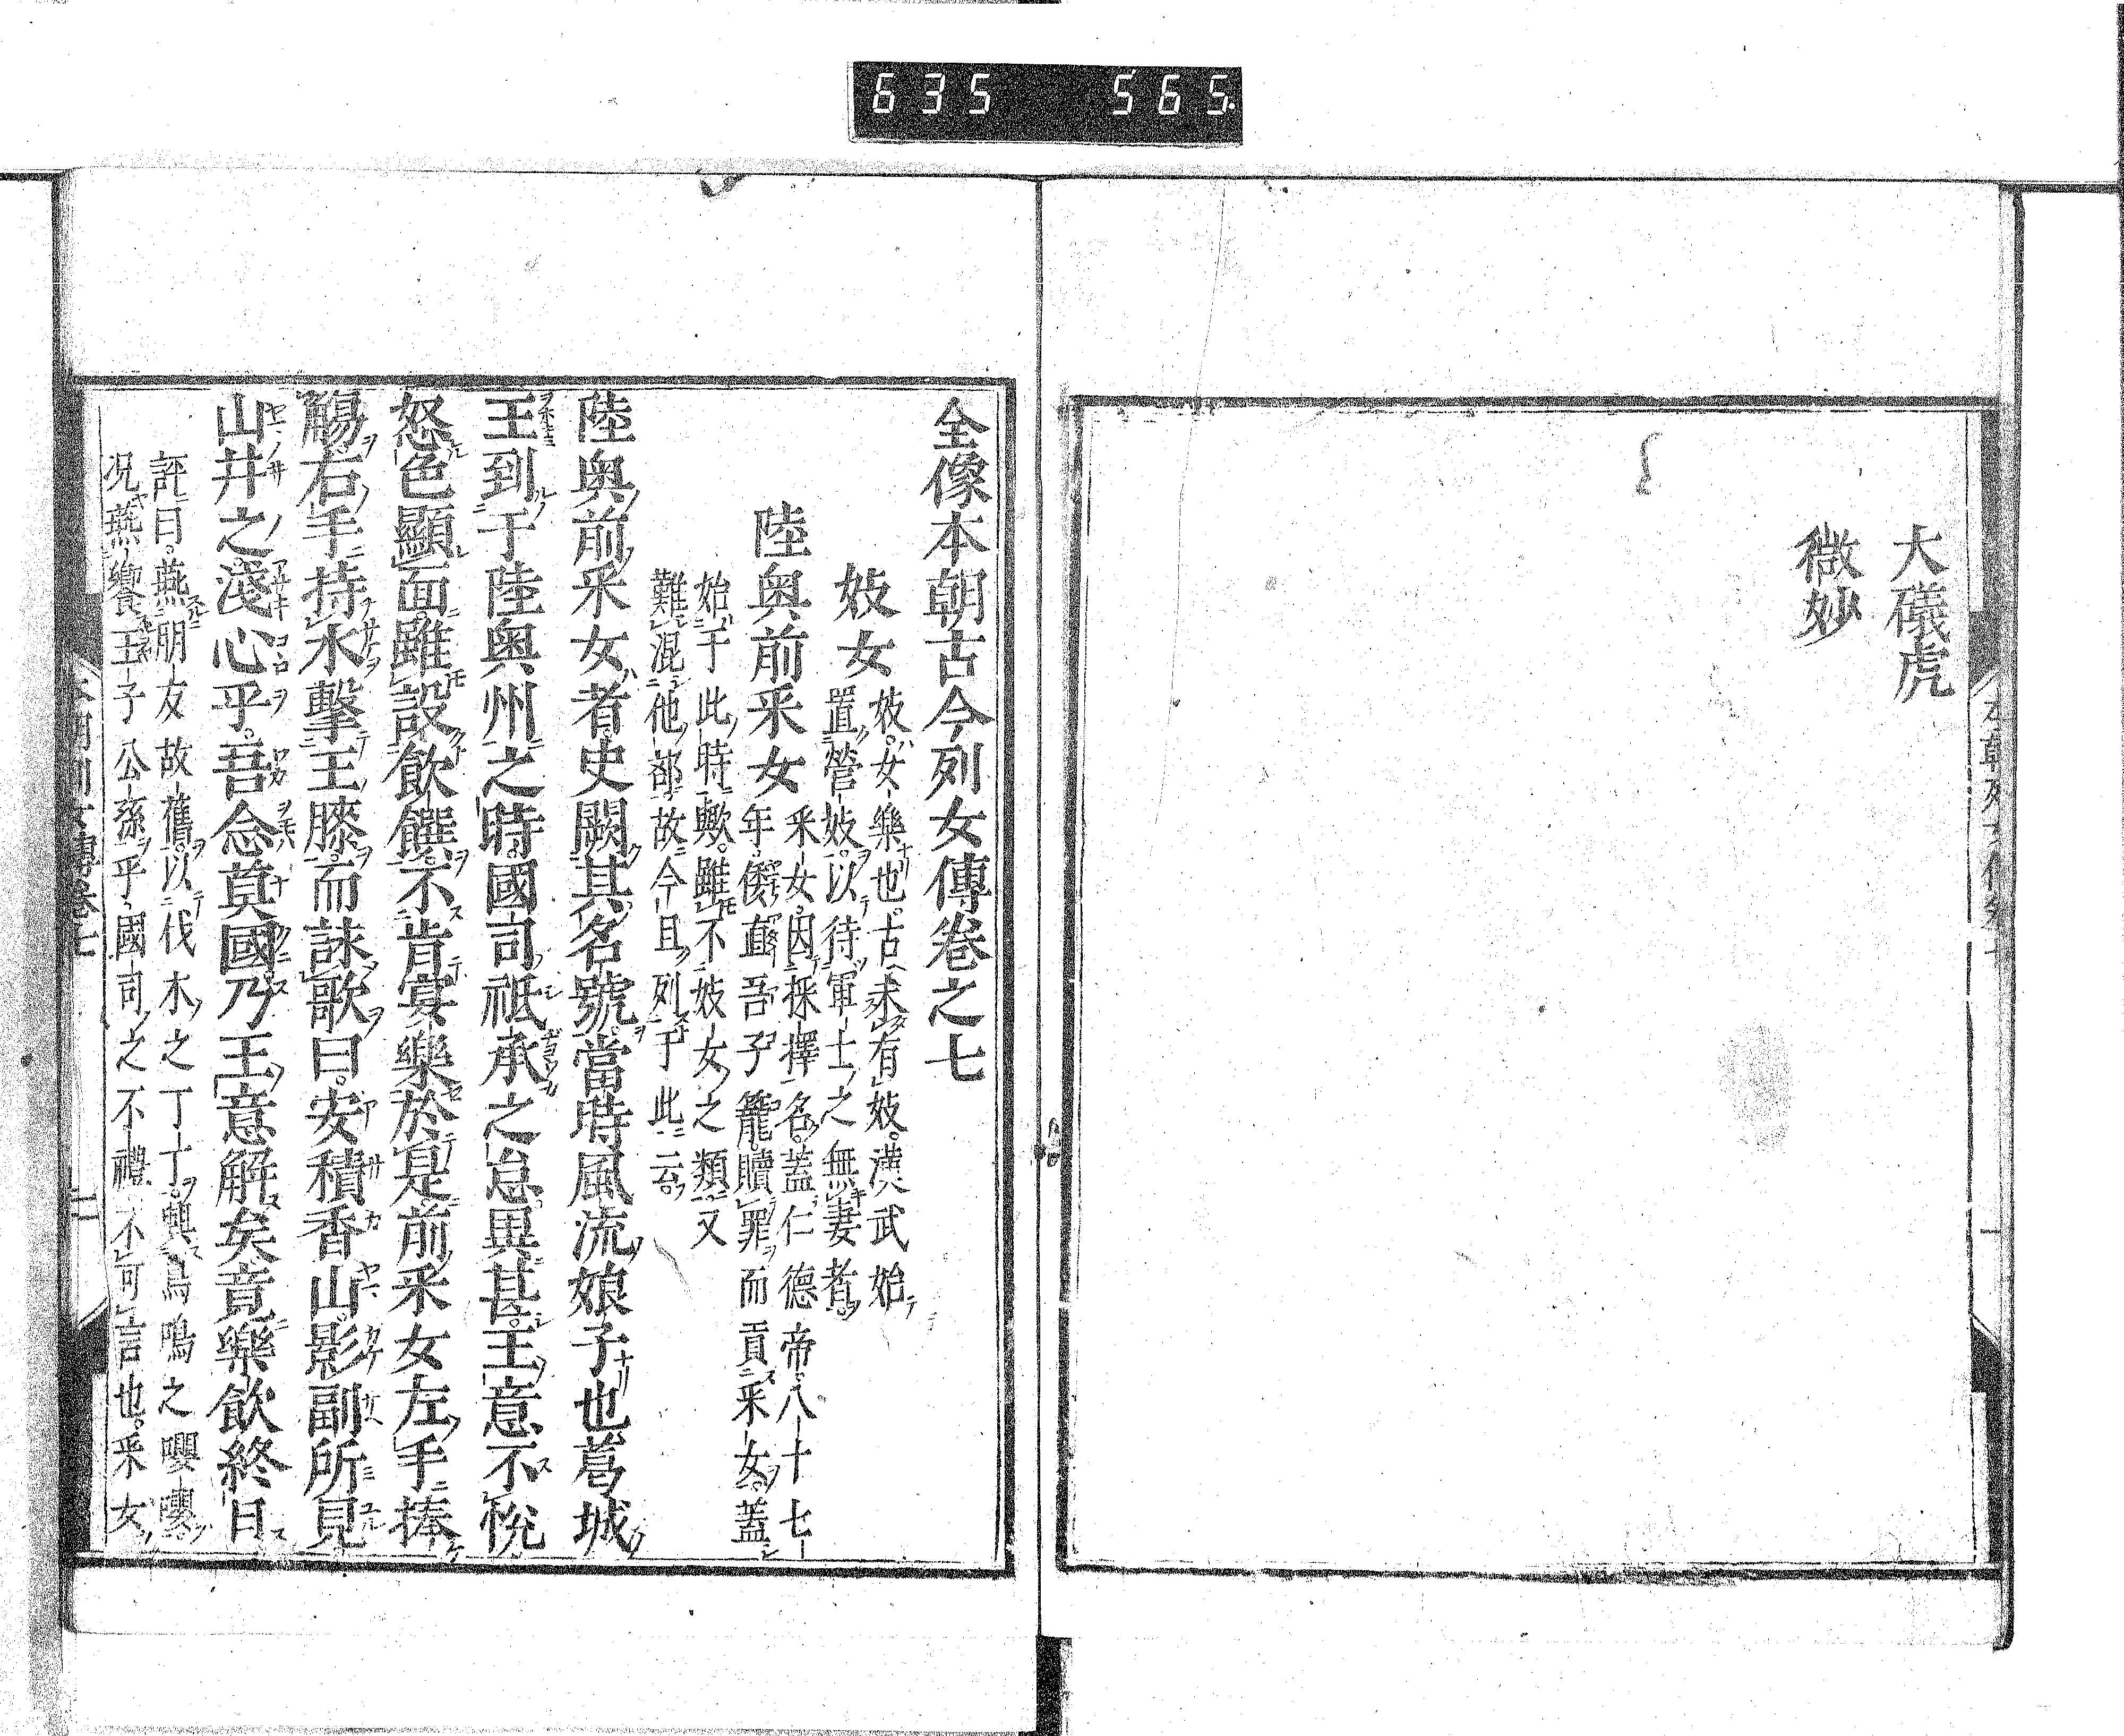 635 565.
大礒虎
微妙
全像本朝古今列女傳卷之七
妓女
妓。女樂也。古未有妓。漢武始
置營妓。以待軍士之無妻者。
陸奥前采女
采女。因採擇名。蓋仁德帝八十七
年。倭直吾子籠。贖罪而貢采女。蓋
始于此時歟。雖不妓女之類。又
難混他部。故今且列于此云。
陸奥前采女者。史闕其名號。當時風流娘子也。葛城
王到于陸奥州之時。國司祗承之怠異甚。王意不悅
怒色顯面。雖設飲饌。不肯宴樂。於是前采女左手捧
觴。右手持水。擊王膝。而詠歌曰。安積香山影副所見
山井之淺心乎。吾念莫國。乃王意解矣。竟樂飲終日
評曰。燕朋友故舊。以伐木之丁丁。興鳥鳴之嚶嚶。
况燕饗王子公孫乎。國司之不禮不可言也。采女
本朝列女傳卷七